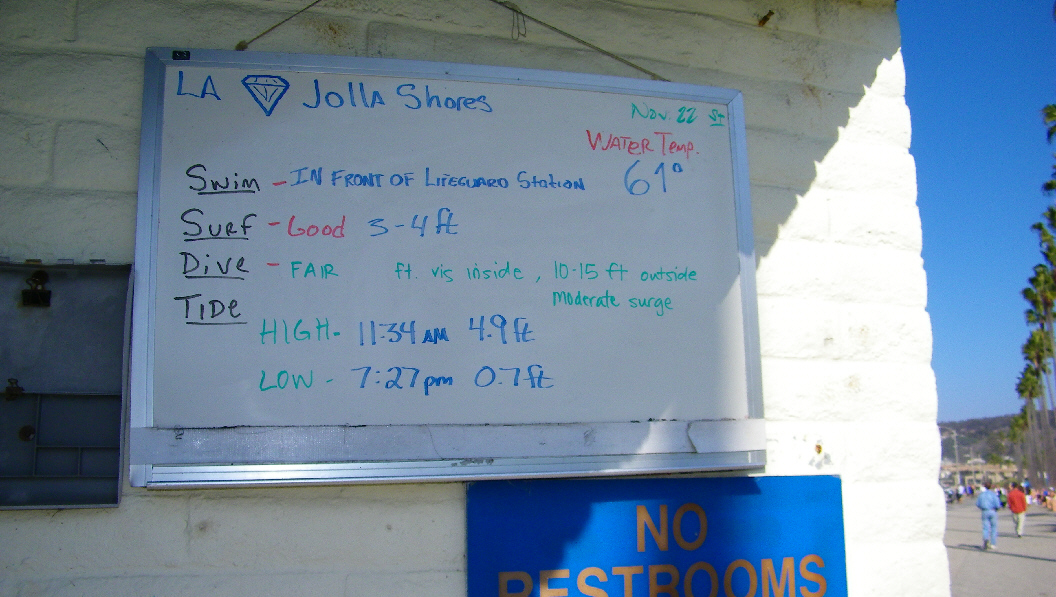 LA JollA Shores
Nov. 22 st
WATER Temp.
61°
Swim - IN FRONT OF LIFEGUARD STATION
Surf - Good 3-4 ft
Dive - FAIR ft. vis inside, 10-15 ft outside
Moderate surge
TIDe
HIGH- 11:34 AM 4.9 ft
LOW - 7:27pm 0.7 ft
NO
RESTROOMS